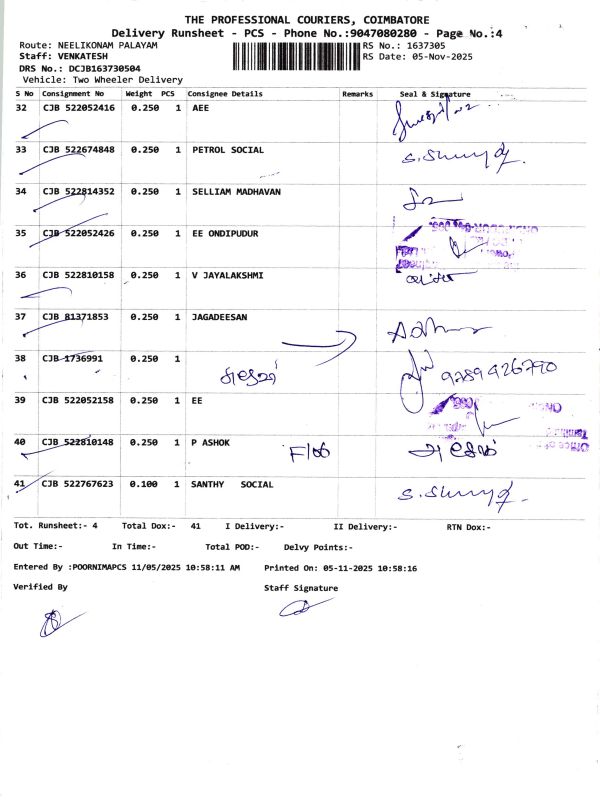 THE PROFESSIONAL COURIERS, COIMBATORE
Delivery Runsheet - PCS - Phone No.:9047080280 - Page No.:4
Route: NEELIKONAM PALAYAM RS No.: 1637305
Staff: VENKATESH RS Date: 05-Nov-2025
DRS No.: DCJB163730504
Vehicle: Two Wheeler Delivery
S No Consignment No Weight PCS Consignee Details Remarks Seal & Signature
32 CJB 522052416 0.250 1 AEE
33 CJB 522674848 0.250 1 PETROL SOCIAL
34 CJB 522814352 0.250 1 SELLIAM MADHAVAN
35 CJB 522052426 0.250 1 EE ONDIPUDUR
36 CJB 522810158 0.250 1 V JAYALAKSHMI
37 CJB 81371853 0.250 1 JAGADEESAN
38 CJB 1736991 0.250 1 9789426790
39 CJB 522052158 0.250 1 EE
40 CJB 522810148 0.250 1 P ASHOK
41 CJB 522767623 0.100 1 SANTHY SOCIAL
Tot. Runsheet:- 4 Total Dox:- 41 I Delivery:- II Delivery:- RTN Dox:-
Out Time:- In Time:- Total POD:- Delvy Points:-
Entered By :POORNIMAPCS 11/05/2025 10:58:11 AM Printed On: 05-11-2025 10:58:16
Verified By Staff Signature